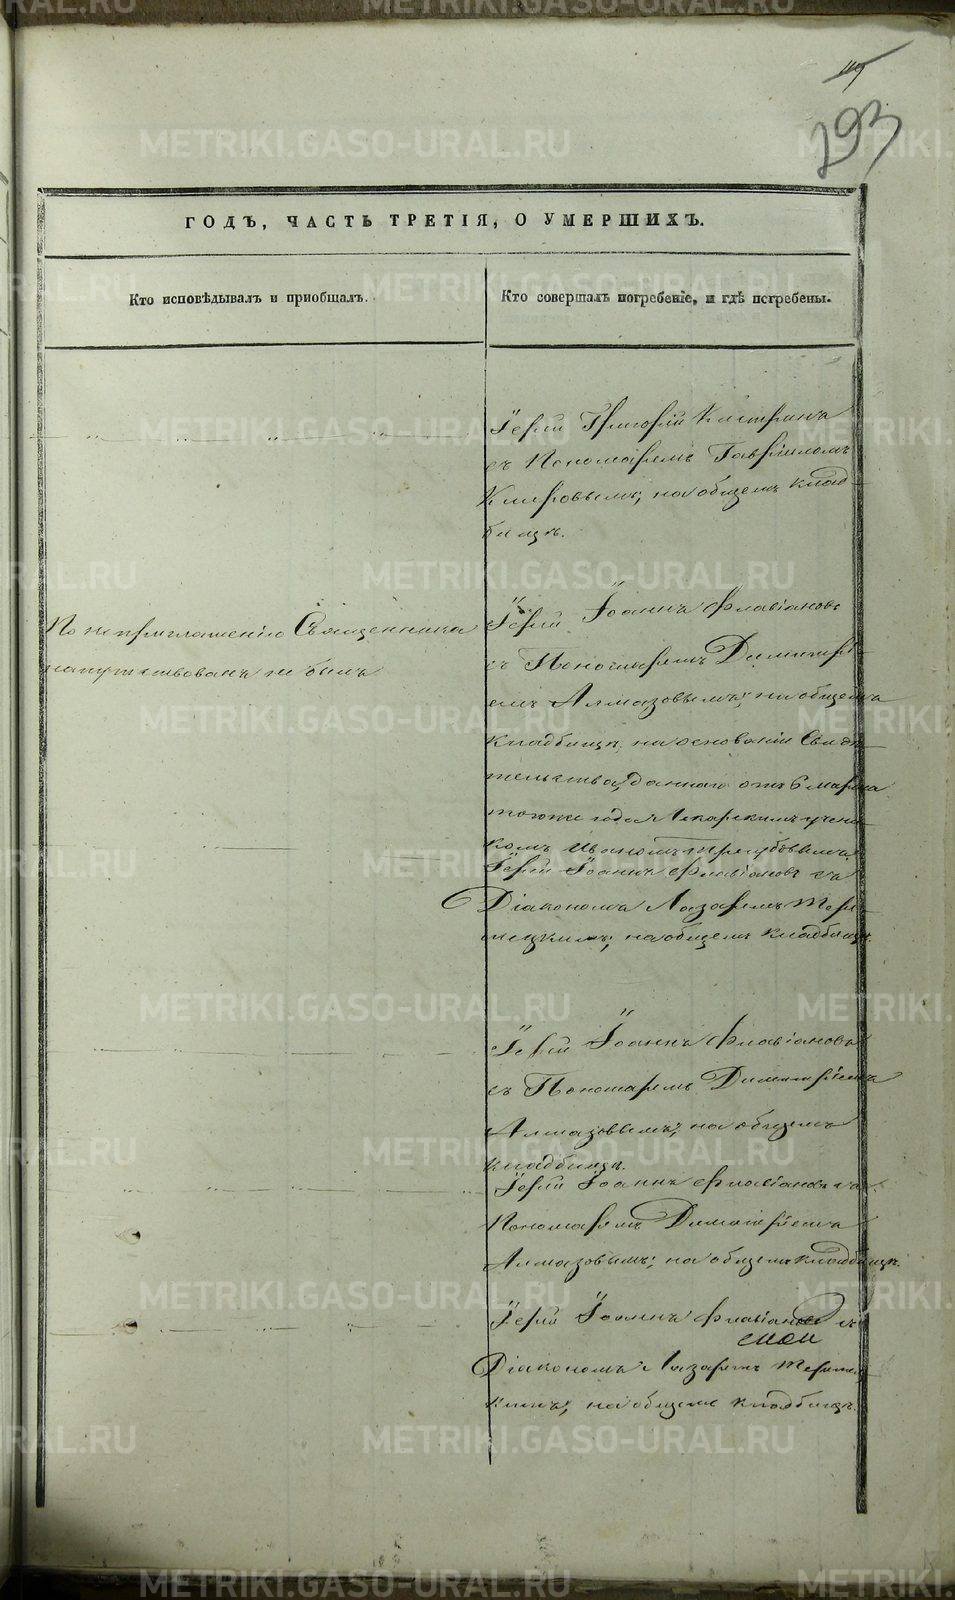 119
293
ГОДЪ, ЧАСТЬ ТРЕТІЯ, О УМЕРШИХЪ.
Кто исповѣдывалъ и приобщалъ.
Кто совершалъ погребеніе, и гдѣ погребены.
Іерей Григорій
съ Пономаремъ Гавріиломъ
Кипровымъ; на общемъ клад-
бищѣ.
По неприглашенію Священника
напутствованъ не былъ
Іерей Іоаннъ Флавіановъ
съ Пономаремъ Димитрі-
емъ Алмазовымъ; на общемъ
кладбищѣ, на основаніи Свидѣ-
тельства, даннаго отъ 6 марта
тогоже года Лекарскимъ учени-
комъ Иваномъ
Іерей Іоаннъ Флавіановъ съ
Діакономъ Лазаремъ
на общемъ кладбищѣ.
Іерей Іоаннъ Флавіановъ
съ Пономаремъ Димитріемъ
Алмазовымъ; на общемъ
кладбищѣ.
Іерей Іоаннъ Флавіановъ съ
Пономаремъ Димитріемъ
Алмазовымъ; на общемъ кладбищѣ.
Іерей Іоаннъ Флавіановъ съ
Діакономъ Лазаремъ
на общемъ кладбищѣ.
METRIKI.GASO-URAL.RU